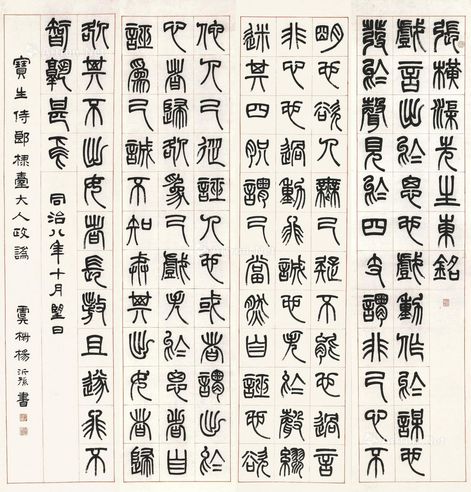 張橫渠先生東銘
戲言出於思也戲動作於謀也
發於聲見於四支謂非己心不
明也欲人無己疑不能也過言
非心也過動非誠也失於聲繆
迷其四謂己當然自誣也欲
他人己從誣人也或者謂出於
心者歸咎爲己戲失於思者自
誣爲己誠不知戒其出女者歸
咎其不出女者長敖且遂非不
智孰甚焉 同治八年十月朢日
寶生侍郎棣臺大人政譌 虞楊沂孫書